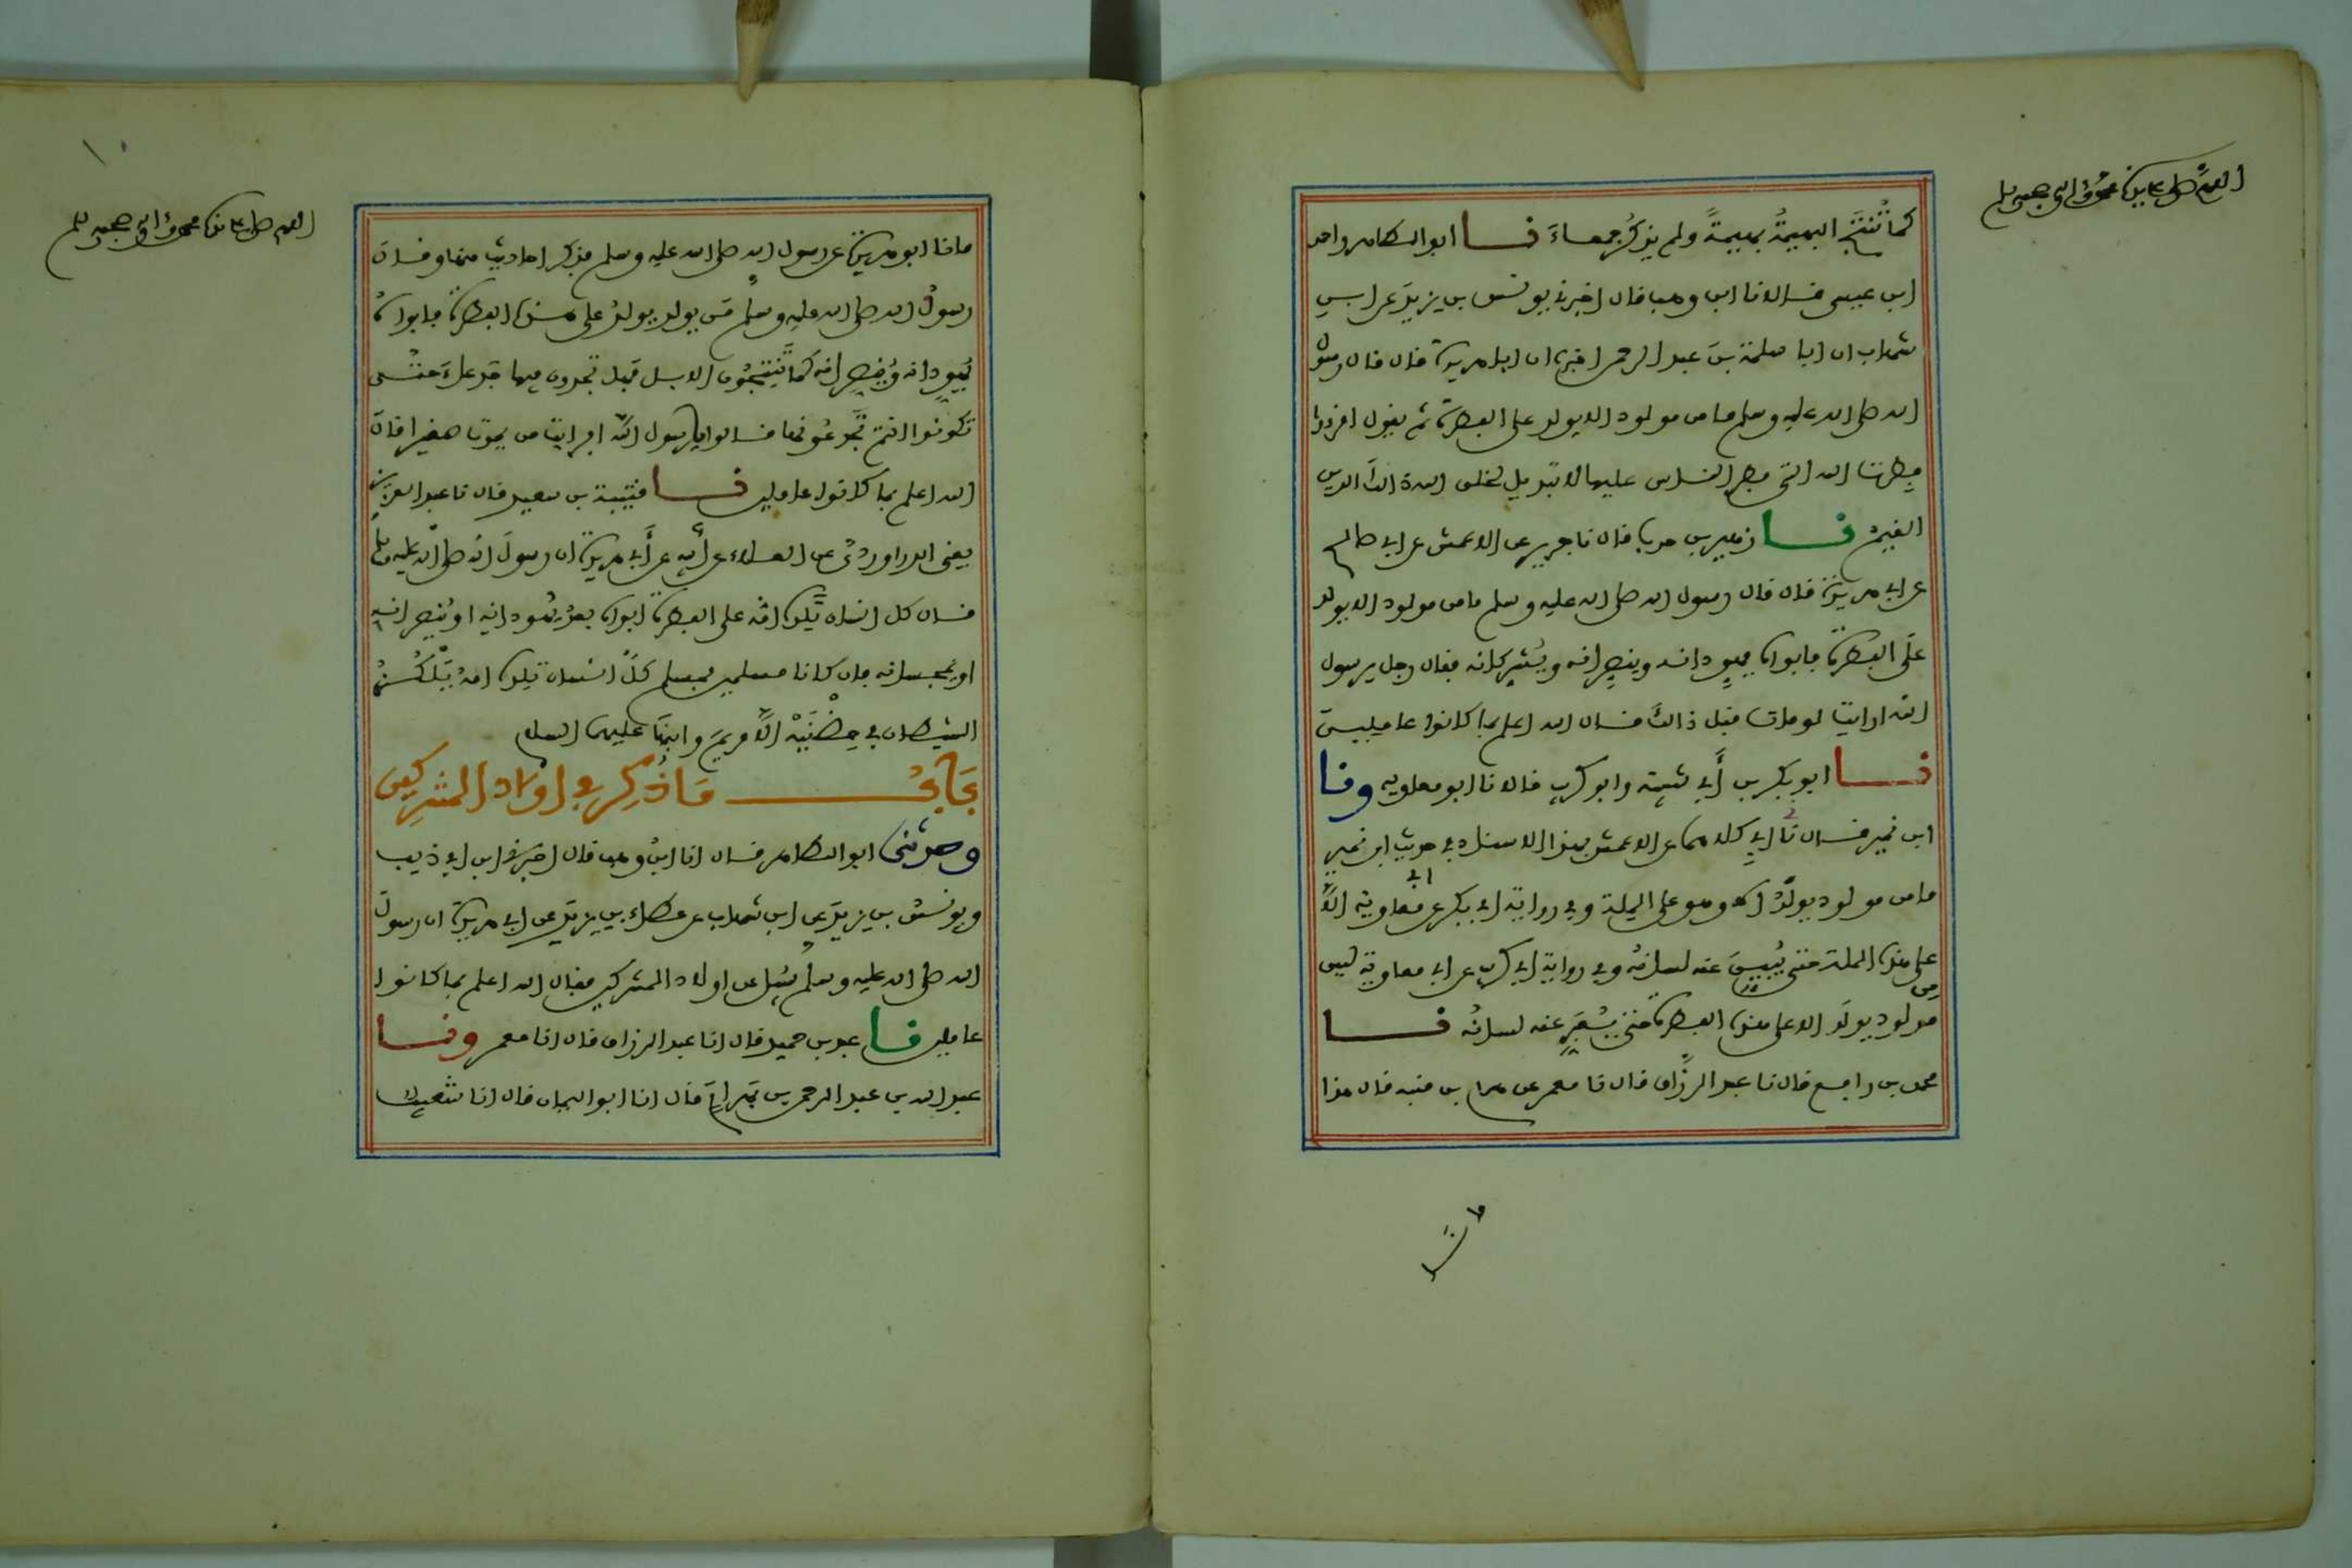 اللهم صل على سيدنا محمد وآله وصحبه وسلم
كما تُنتَج البهيمةُ بهيمةً ولم يذكرْ جمعاءَ نا ابو الطاهر واحمد
ابن عيسى قالا نا ابن وهب قال اخبرني يونس بن يزيدَ عن ابن
شهاب ان ابا سلمة بنَ عبد الرحمن اخبره ان ابا هريرة قال قال رسول
الله صلى الله عليه وسلم ما من مولود الا يولد على الفطرة ثم يقول اقرءوا
فطرتَ الله التي فطر الناس عليها لا تبديل لخلق الله ذالك الدين
القيم نا زهير بن حرب قال نا جرير عن الاعمش عن ابي صالح
عن ابي هريرة قال قال رسول الله صلى الله عليه وسلم ما من مولود الا يولد
على الفطرة فابواه يهودانه وينصرانه ويُشركانه فقال رجل يرسول
الله ارايت لو مات قبل ذالك قال الله اعلم بما كانوا عاملين
نا ابو بكر بن أبي شيبة وابو كريب قالا نا ابو معاوية ونا
ابن نمير قال نا ابي كلاهما عن الاعمش بهذا الاسناد في حديث ابن نمير
ما من مولود يولدُ الا وهو على الملة وفي رواية ابي بكر عن ابي معاوية الا
على هذه الملة حتى يُبينَ عنه لسانُه وفي رواية ابي كريب عن ابي معاوية ليس من
مولود يولد الا على هذه الفطرة حتى يُعَبِّر عنه لسانُه نا
محمد بن رافع قال نا عبد الرزاق قال نا معمر عن همام بن منبه قال هذا
١٠
اللهم صل على سيدنا محمد وآله وصحبه وسلم
ما نا ابو هريرة عن رسول الله صلى الله عليه وسلم فذكر احاديث منها وقال
رسول الله صلى الله عليه وسلم مَن يولد يولدُ على هذه الفطرة فابواهُ
يُهودانه ويُنصرانه كما تَنتِجُون الابل فهل تجدون فيها جدعاءَ حتى
تكونوا انتم تَجدعُونها قالوا يارسول الله افرايت من يموت صغيرا قال
الله اعلم بما كانوا عاملين نا قتيبة بن سعيد قال نا عبد العزيز
يعني الدراوردي عن العلاء عن أبيه عن أبي هريرة ان رسولَ الله صلى الله عليه وسلم
قال كل انسان تَلِده امُّه على الفطرة ابواه بعدُ يُهودانه او يُنصرانه
او يُمجسانه فان كانا مسلمين فمسلم كلُّ انسان تلده امهُ يَلْكُزُهُ
الشيطان في حِضْنَيْه الّا مريمَ وابنَها عليهما السلام
بَابُ مَا ذُكِرَ في اولاد المشركين
وحدثني ابو الطاهر قال انا ابنُ وهب قال اخبرني ابن ابي ذيب
ويونسُ بن يزيدَ عن ابن شهاب عن عطاء بن يزيدَ عن ابي هريرة ان رسول
الله صلى الله عليه وسلم سُيل عن اولاد المشركين فقال الله اعلم بما كانوا
عاملين نا عبد بن حميد قال انا عبد الرزاق قال انا معمر ونا
عبد الله بن عبد الرحمن بن بَهرام قال انا ابو اليمان قال انا شعيب